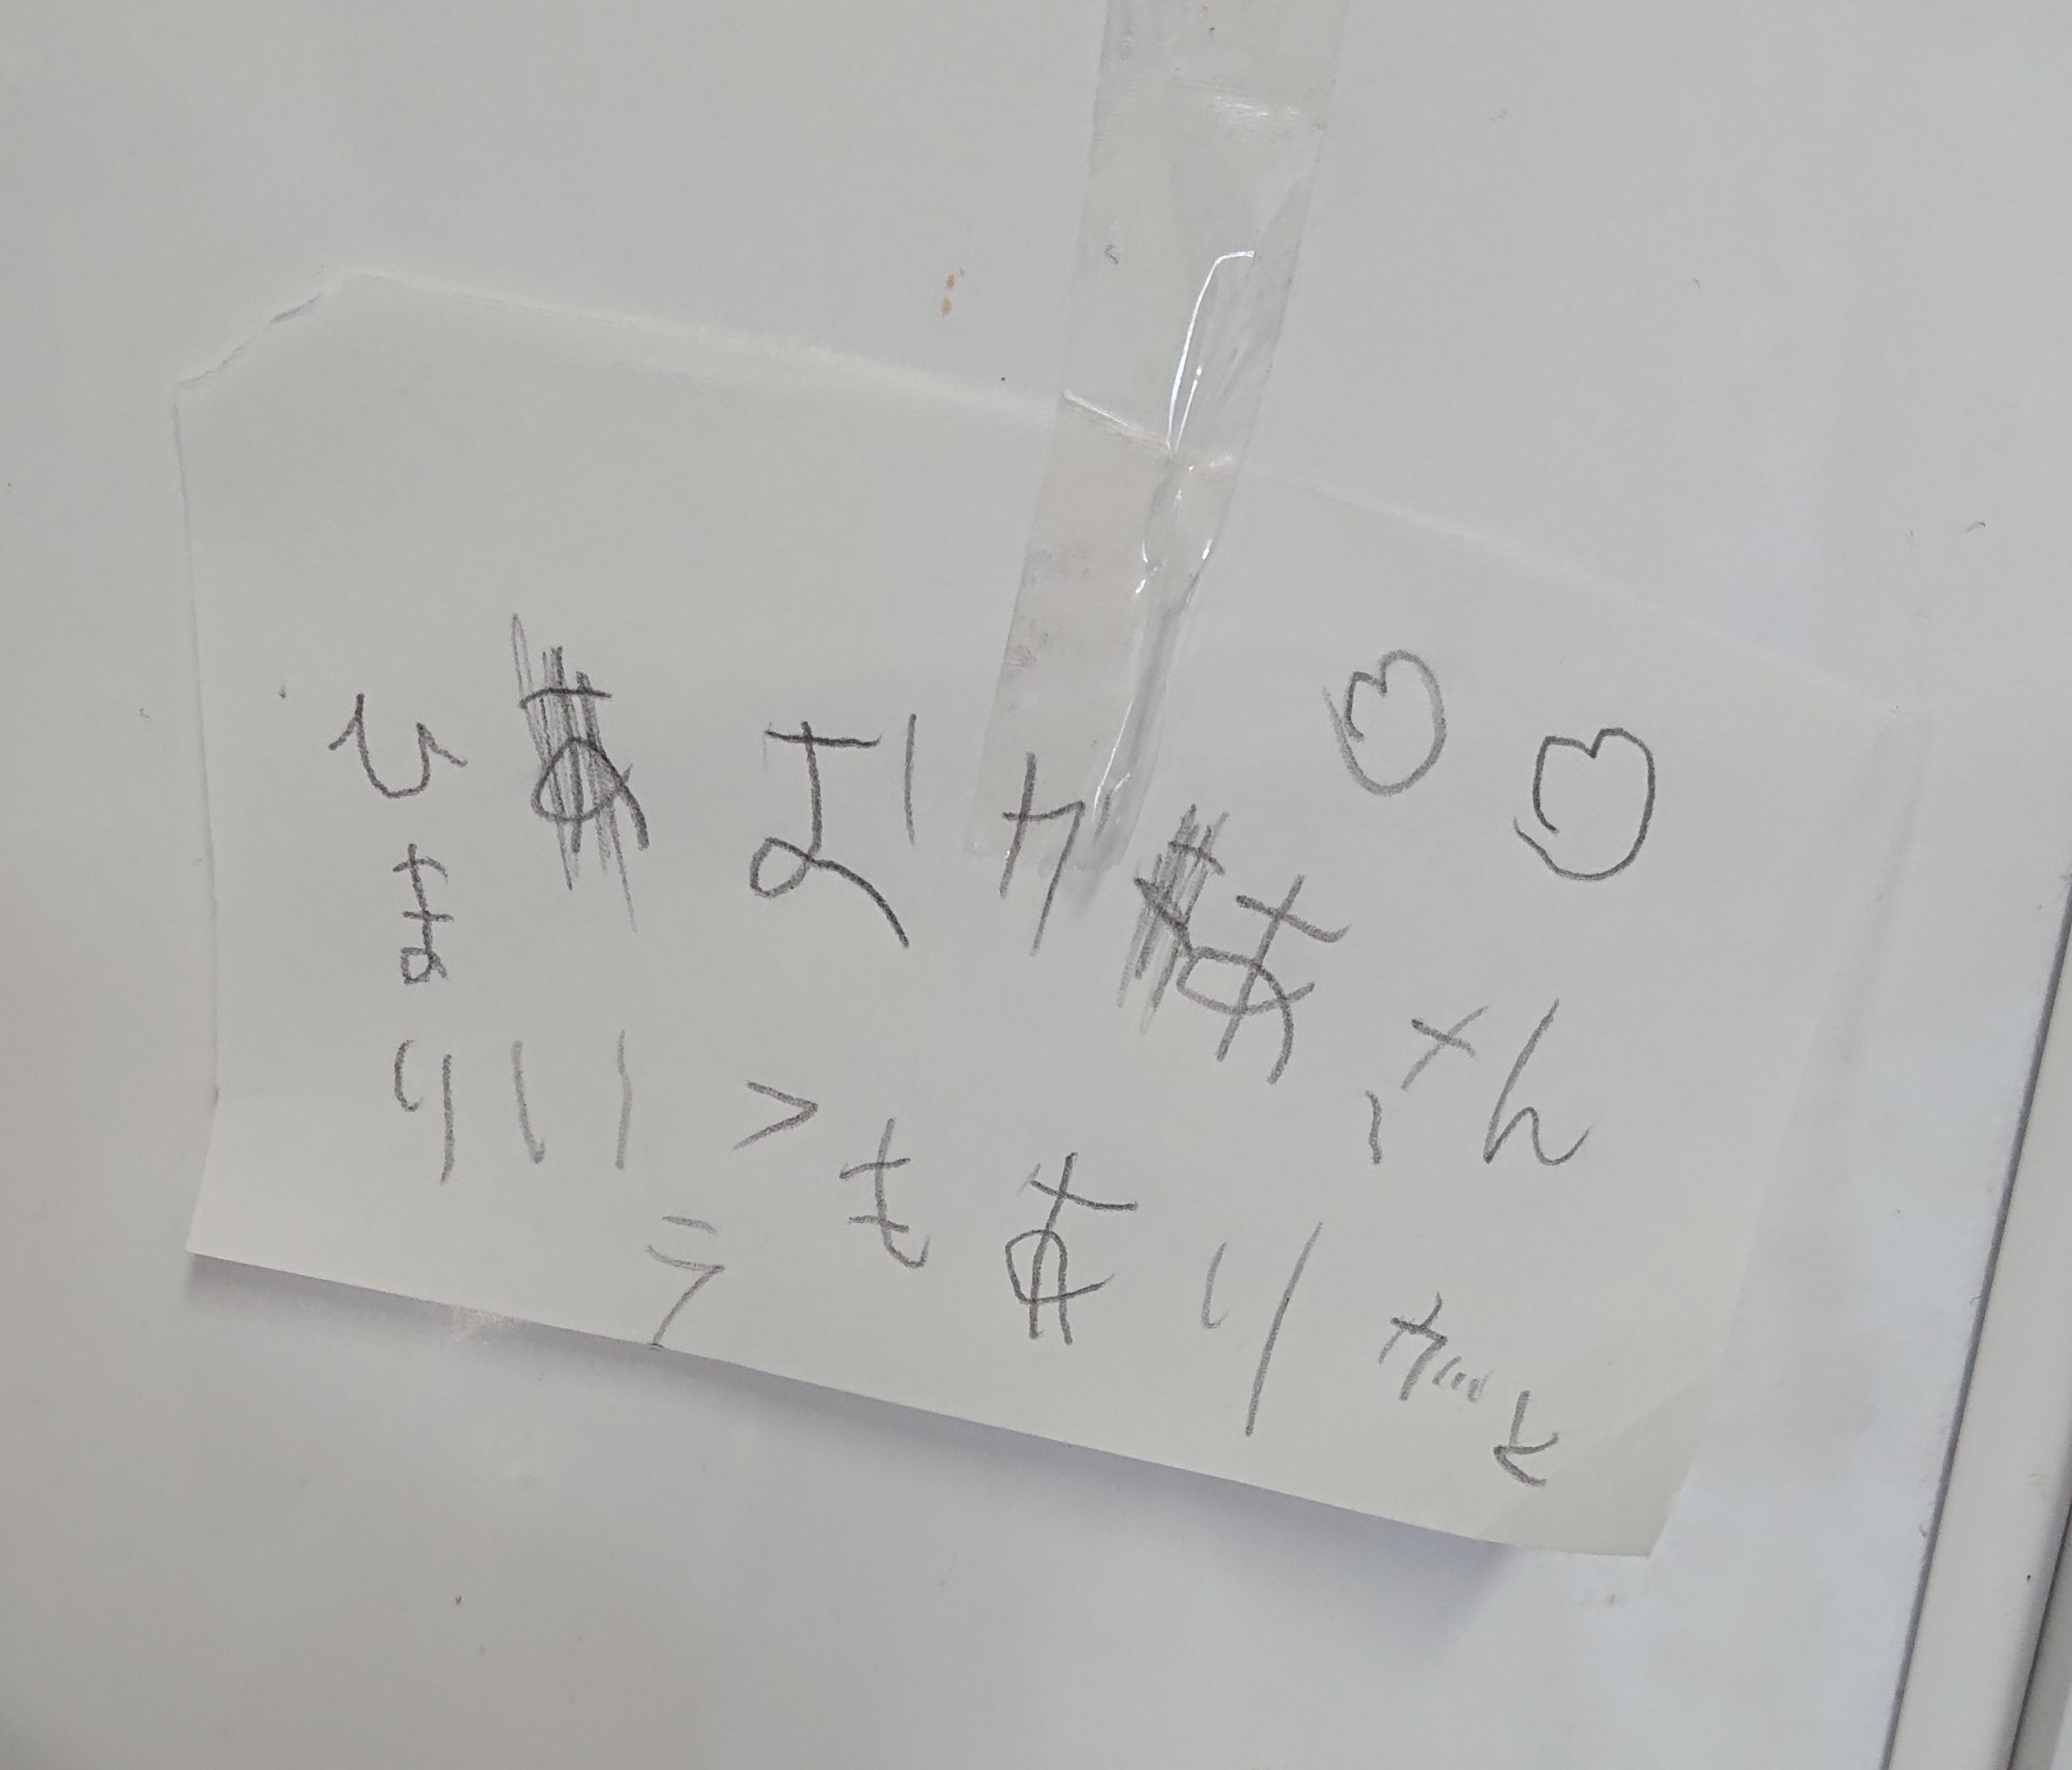 おかあさん
いつもありがと
う
ひまり